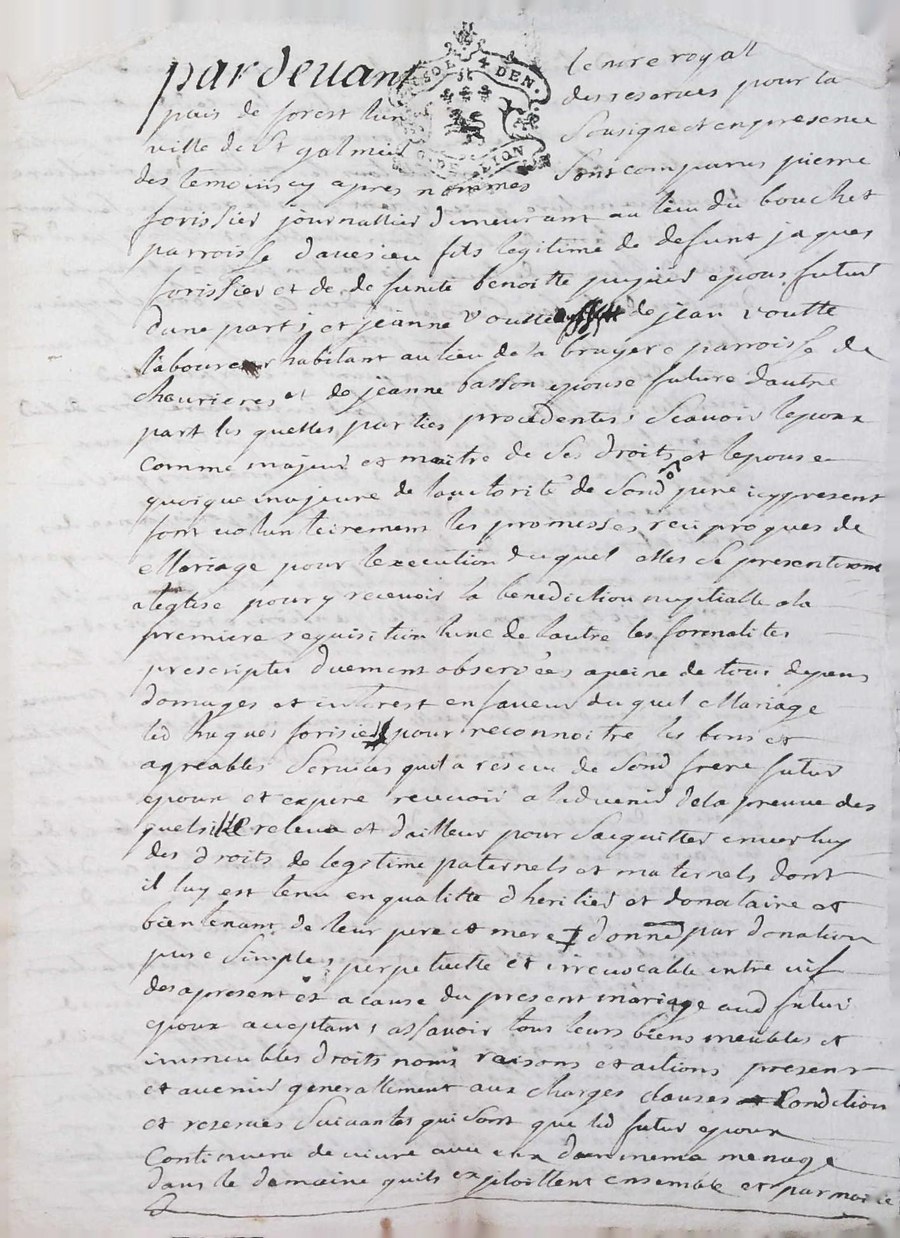 pardevant le nore royal
pais de forest lun des reservés pour la
ville de St galmier Sousigné et en presence
des temoins cy apres nommés Sont comparus pierre
forissier journallier demeurant au lieu du bouchet
parroisse daveizieu fils legitime de defunt jaques
forissier et de defunte benoitte epoux futur
dune part ; et jeanne voutte de jean voutte
laboureur habitant au lieu de la bruyere parroisse de
chevrieres et de jeanne basson epouse future dautre
part les quelles parties procedentes ; Scavoir lepoux
comme majeur et maitre de Ses droits et lepouse
quoique majeure de lautorité de Sond pere icy present
font volontairement les promesses reciproques de
Mariage pour lexecution duquel elles Se presenteront
a leglise pour y recevoir la benediction nuptialle a la
premiere requisition lune de lautre les formalités
prescriptes duement observées a peine de tous depens
domages et interest en faveur du quel Mariage
led jaques forissier pour reconnoitre les bons et
agreables Services quil a reseu de Sond frere futur
epoux et espere recevoir a ladvenir de la preuve des
quels il le releva et dailleur pour Sacquitter enver luy
des droits de legitime paternels et maternels dont
il luy est tenu en qualitté dheritier et donataire et
bientenant de leur pere et mere donne par donation
pure Simple perpetuelle et irrevocable entre vif
des apresent et a cause du present mariage aud futur
epoux acceptant ; assavoir tous leurs biens meubles et
immeubles droits noms raisons et actions present
et avenir generallement aux charges clauses Condition
et reserves Suivantes qui Sont que led futur epoux
Continuera de vivre avec eux dun meme menage
dans le domaine quils exploittent ensemble et